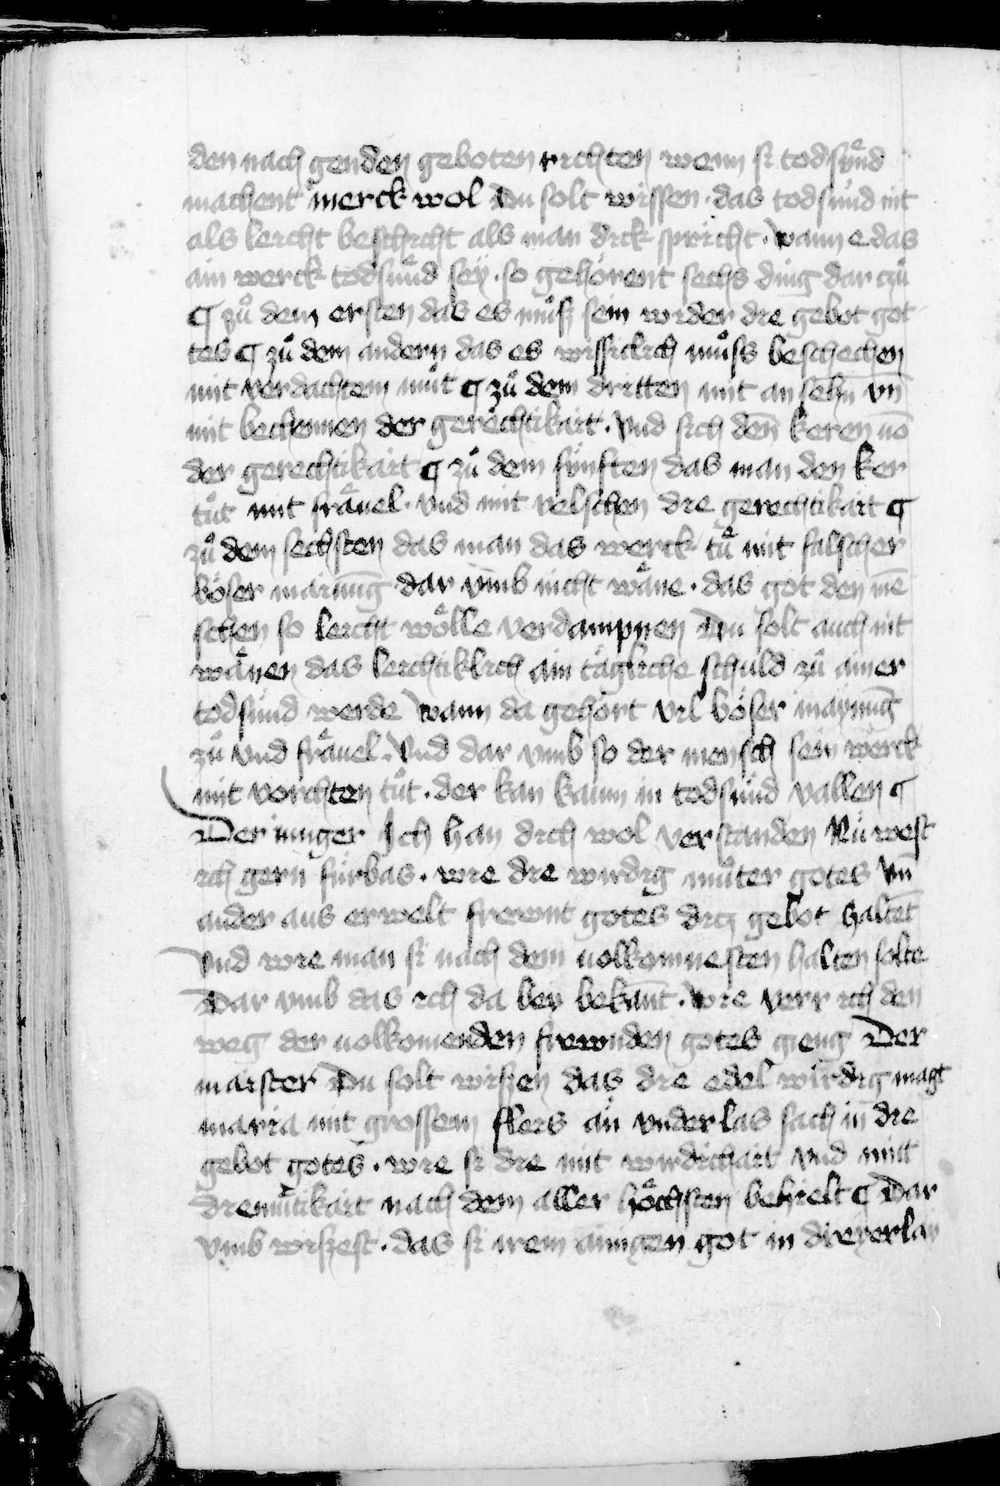 den nach genden geboten richten wenn si todsuͤnd
machent merck wol Du solt wissen · das todsuͤnd nit
als leicht beschicht als man dick spricht · wann e das
ain werck todsuͤnd sey · so gehoͤrent sechs ding dar zuͦ
¶ zuͦ dem ersten das es muͦsz sein wider die gebot got
tes ¶ zuͦ dem andern das es wissiclich muͦss beschechen
mit verdachtem muͦt ¶ zuͦ dem dritten mit an sehn vn̄
mit bechennen der gerechtikait · Vnd sich den̄ keren vō
der gerechtikait ¶ zuͦ dem fünften das man den ker
tuͦt mit fraͤuel · vnd mit velschen die gerechtikait ¶
zuͦ dem sechsten das man das werck tuͤ mit falscher
boͤser mainūg dar vmb nicht waͤne · das got den mē
schen so leicht woͤlle verdampnen Du solt auch nit
waͤnen das leichtiklich ain taͤgliche schuld zuͦ ainer
todsuͤnd werde Wann da gehoͤrt vil boͤser maynūg
zuͦ vnd fraͤuel · Vnd dar vmb so der mensch sein werck
mit vorchten tuͦt · der kan kaum in todsuͤnd vallen ¶
Der iunger Ich han dich wol verstanden Nu west
ich gern fürbas · wie die wirdig muͦter gotes vn̄
ander aus erwelt frewnt gotes dicz gebot haltēt
Vnd wie man si nach dem uolkomnesten halten solte
Dar vmb das ich da bey bekān̄t · Wie verr ich den
weg der uolkomenden frewnden gotes gieng Der
maister Du solt wiszen das die edel wirdig magt
maria mit grossem fleis an vnderlas sach in die
gebot gotes · wie si die mit wirdichait vnd mitt
diemuͤtikait nach dem aller hoͤchsten behielt ¶ Dar
vmb wiszest · das si irem ainigen got in dreyerlay